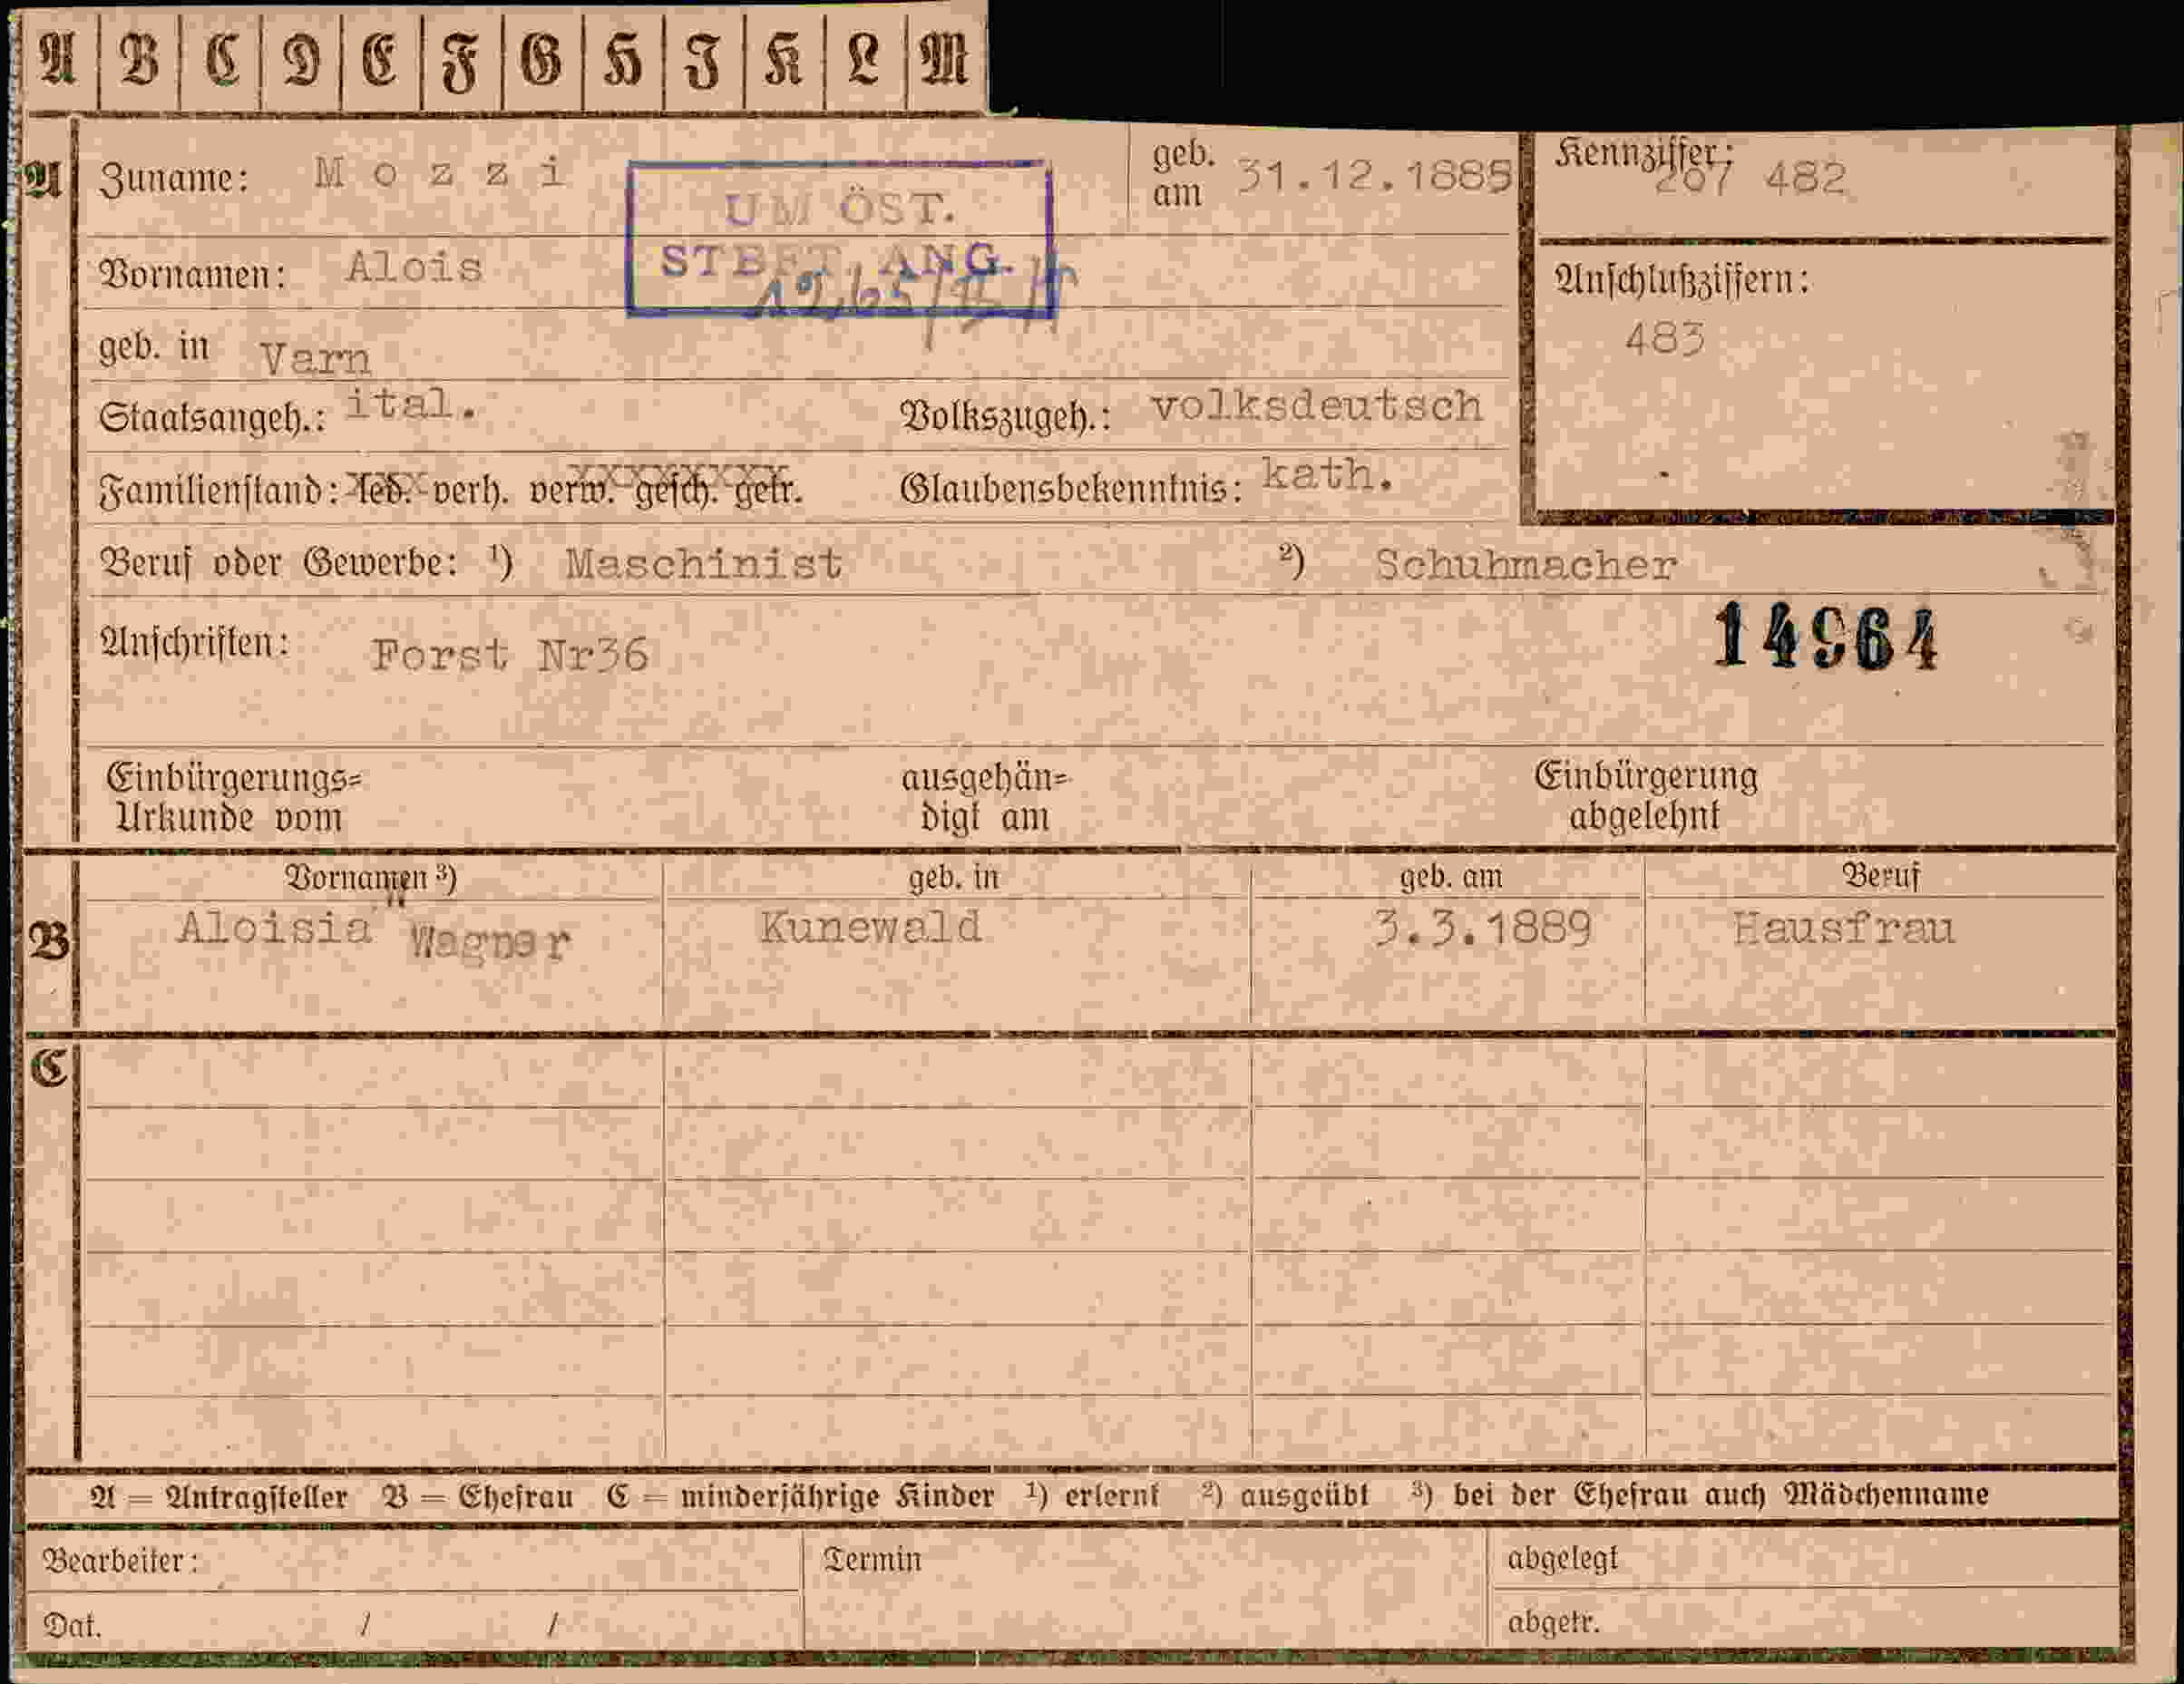 A B C D E F G H J K L M
A Zuname: Mozzi geb. am 31.12.1885 Kennziffer: 207 482
UM ÖST.
STBFT. ANG.
Vornamen: Alois Anschlußziffern:
483
geb. in Varn
Staatsangeh.: ital. Volkszugeh.: volksdeutsch
Familienstand: led. verh. verw. gesch. getr. Glaubensbekenntnis: kath.
Beruf oder Gewerbe: ¹) Maschinist ²) Schuhmacher
Anschriften: Forst Nr36 14964
Einbürgerungs= ausgehän= Einbürgerung
Urkunde vom digt am abgelehnt
Vornamen ³) geb. in geb. am Beruf
B Aloisia Wagner Kunewald 3.3.1889 Hausfrau
C
A = Antragsteller B = Ehefrau C = minderjährige Kinder ¹) erlernt ²) ausgeübt ³) bei der Ehefrau auch Mädchenname
Bearbeiter: Termin abgelegt
Dat. / / abgetr.